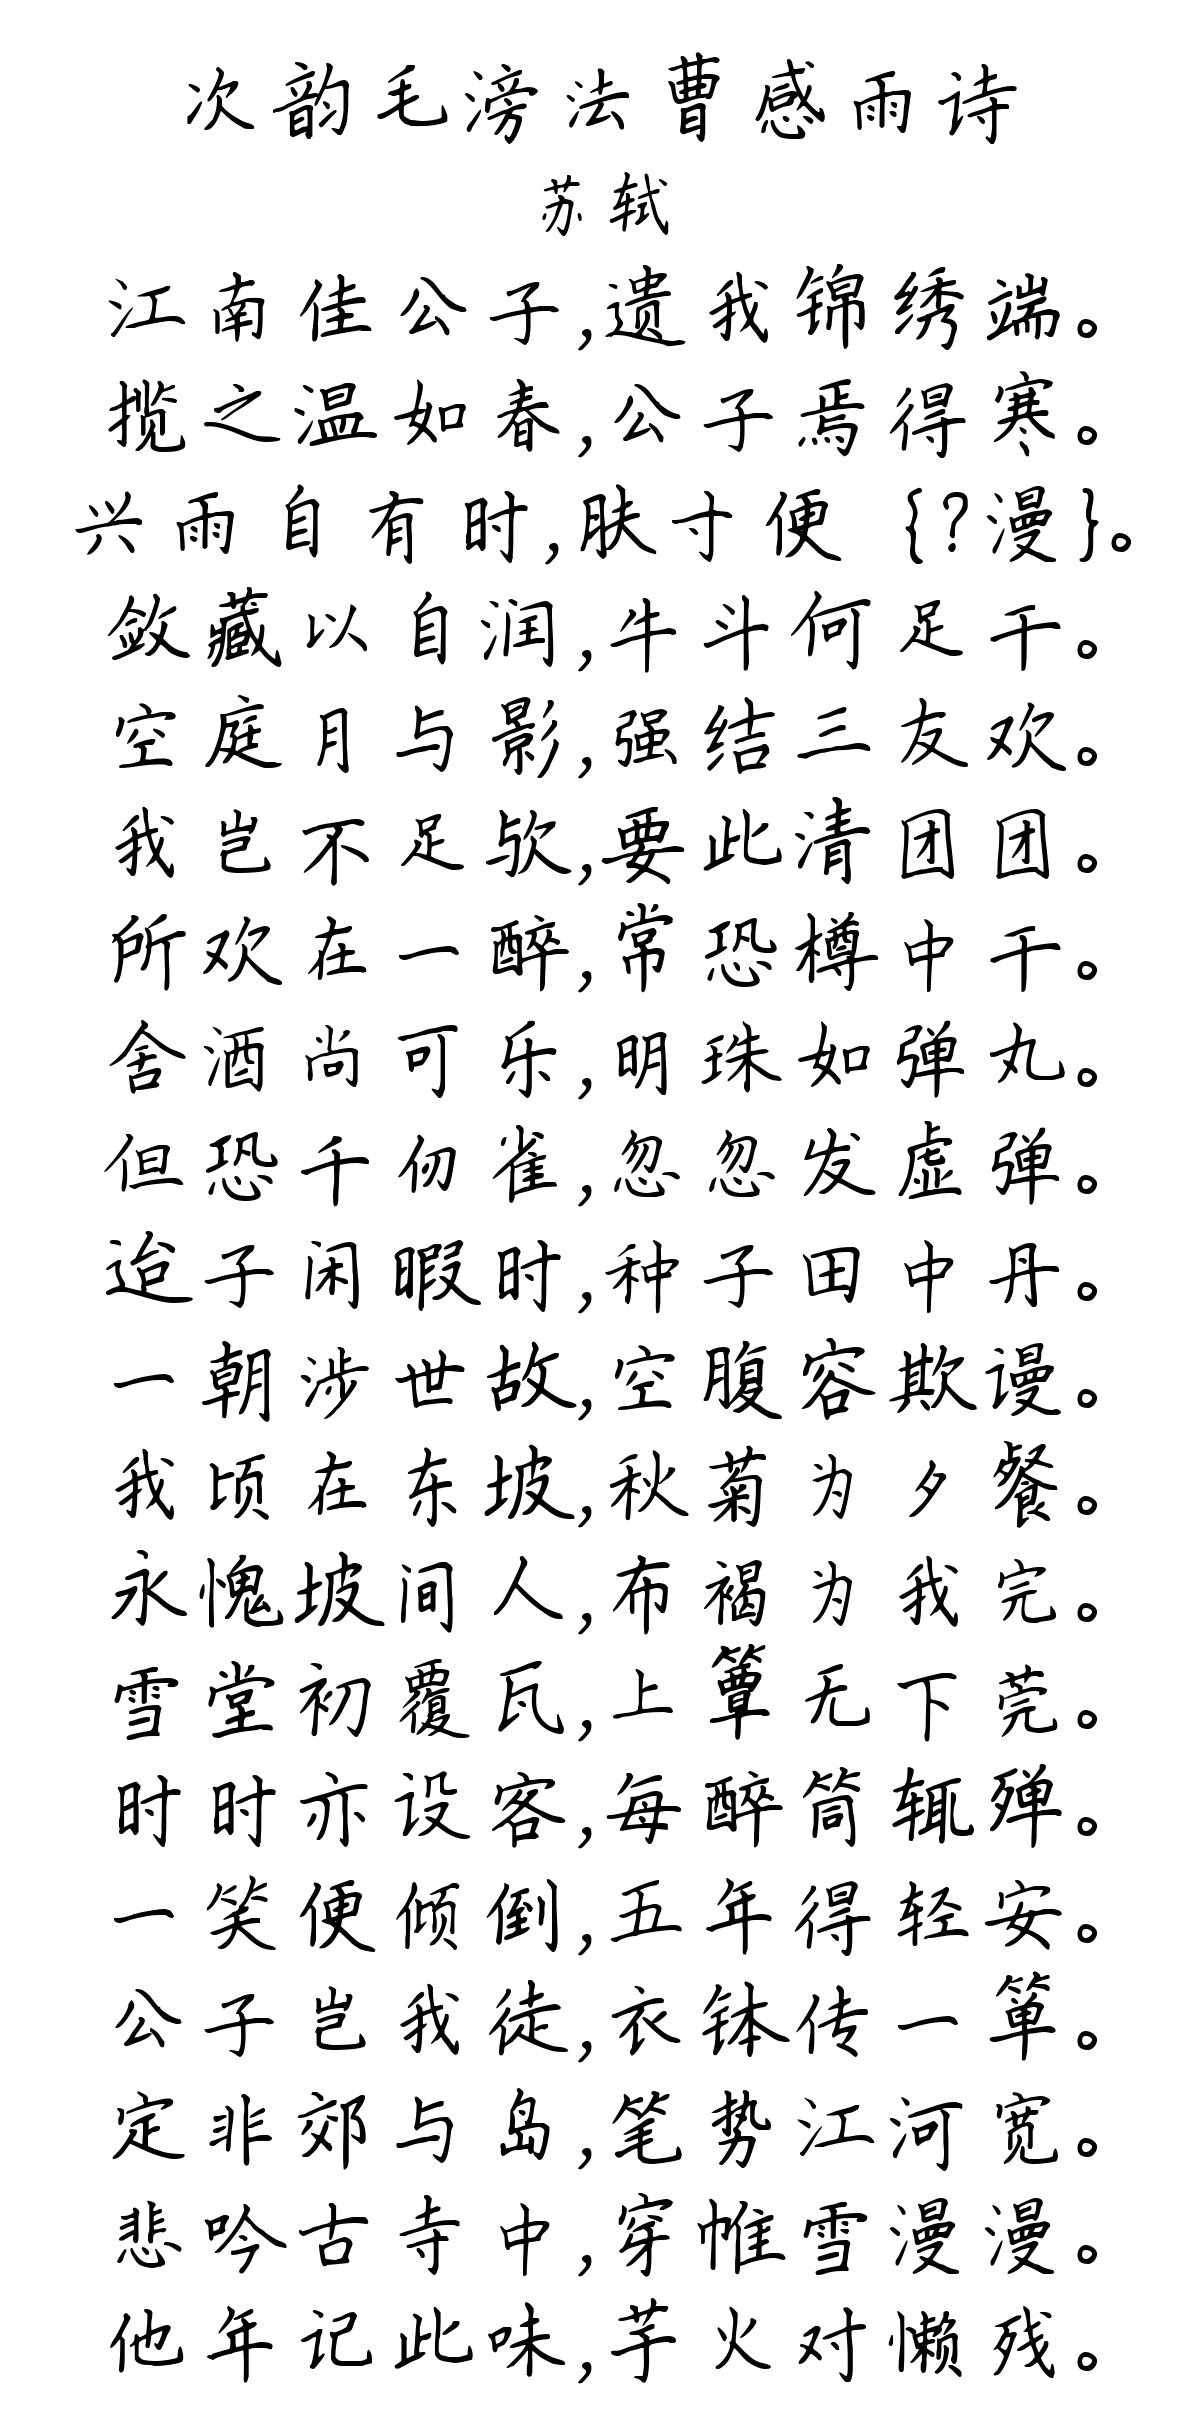 次韵毛滂法曹感雨诗
苏轼
江南佳公子,遗我锦绣端。
揽之温如春,公子焉得寒。
兴雨自有时,肤寸便{?漫}。
敛藏以自润,牛斗何足干。
空庭月与影,强结三友欢。
我岂不足欤,要此清团团。
所欢在一醉,常恐樽中干。
舍酒尚可乐,明珠如弹丸。
但恐千仞雀,忽忽发虚弹。
迨子闲暇时,种子田中丹。
一朝涉世故,空腹容欺谩。
我顷在东坡,秋菊为夕餐。
永愧坡间人,布褐为我完。
雪堂初覆瓦,上簟无下莞。
时时亦设客,每醉筒辄殚。
一笑便倾倒,五年得轻安。
公子岂我徒,衣钵传一箪。
定非郊与岛,笔势江河宽。
悲吟古寺中,穿帷雪漫漫。
他年记此味,芋火对懒残。